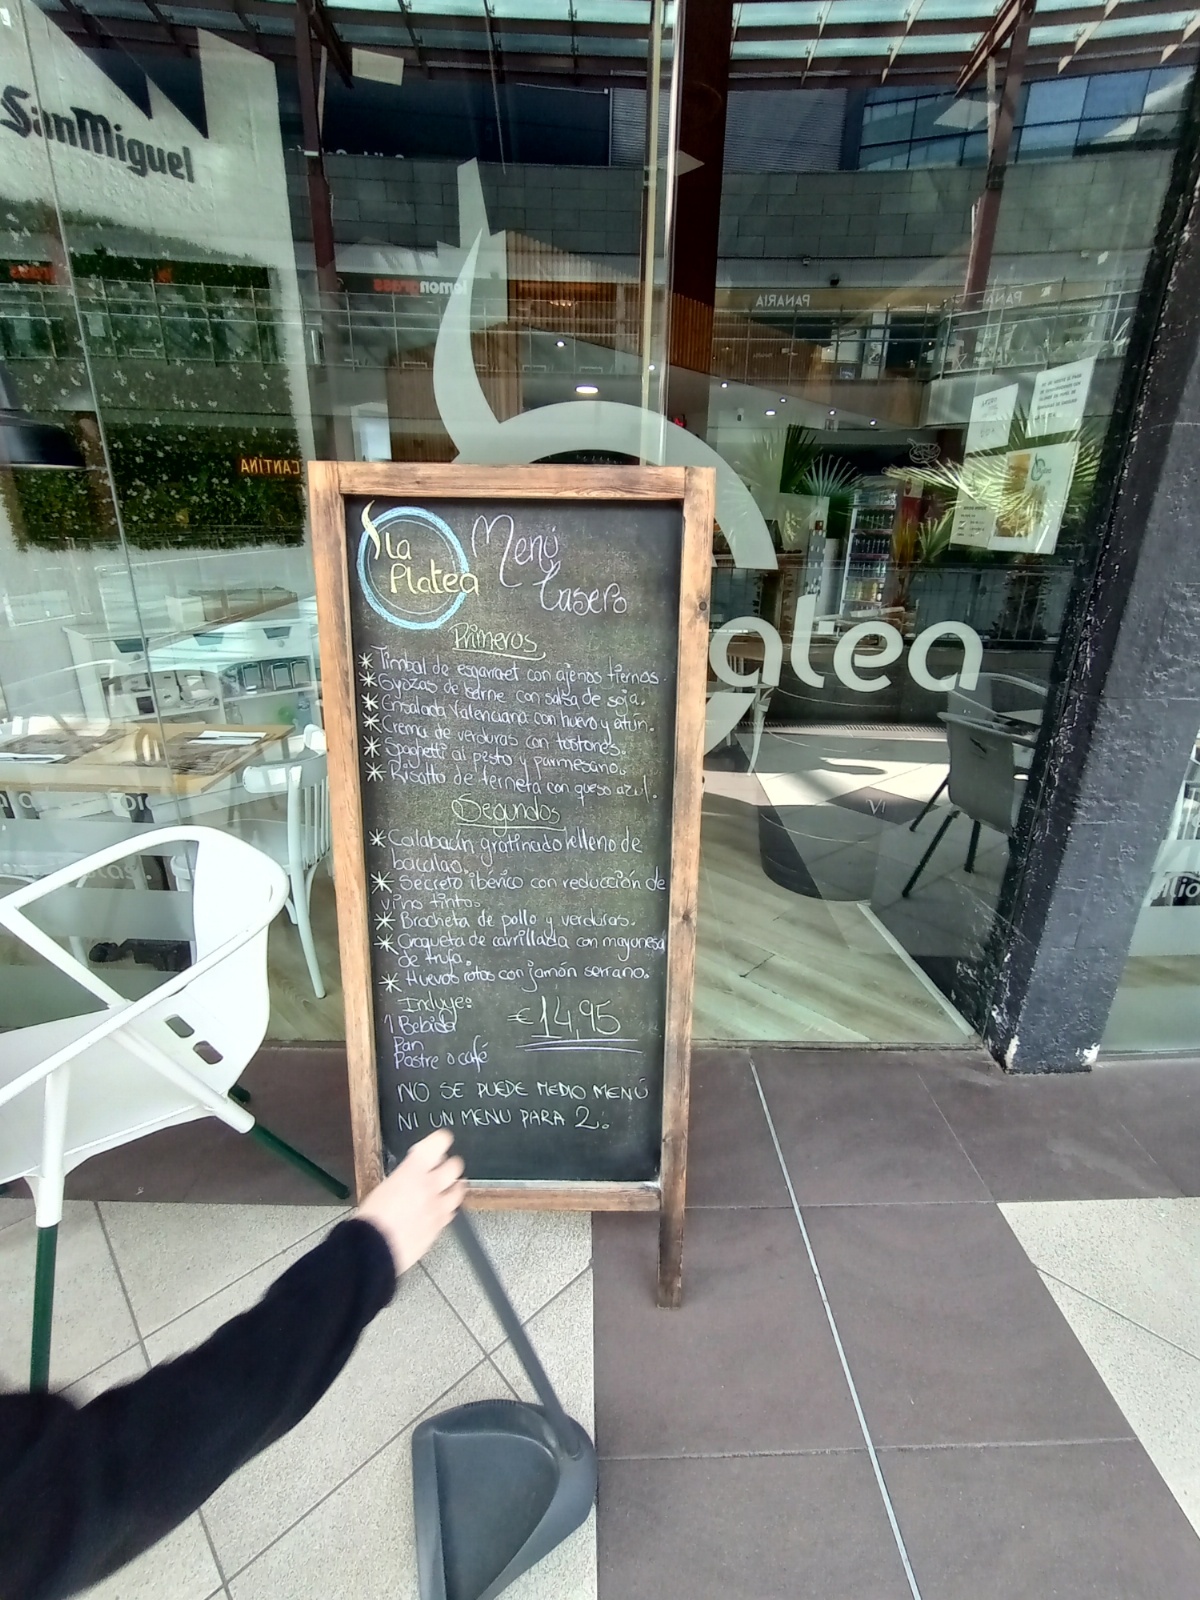 SanMiguel
lemongrass
PANARIA
CANTINA
La
Platea
Menú
Casero
Primeros
*Timbal de esgarraet con ajenos tiernos.
*Gyozas de carne con salsa de soja.
*Ensalada Valenciana con huevo y atún.
*Crema de verduras con tostones.
*Spaghetti al pesto y parmesano.
*Risotto de ternera con queso azul.
Segundos
*Calabacín gratinado relleno de
bacalao.
*Secreto ibérico con reducción de
vino tinto.
*Brocheta de pollo y verduras.
*Croqueta de carrillada con mayonesa
de trufa.
*Huevos rotos con jamón serrano.
Incluye:
1 Bebida
Pan
Postre o café
€14,95
NO SE PUEDE MEDIO MENÚ
NI UN MENU PARA 2.
atea